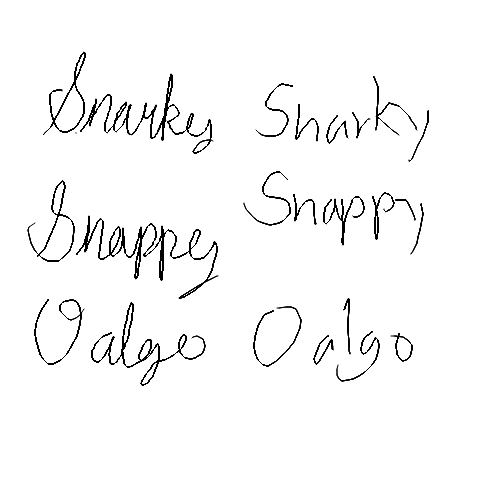 Snarky Snarky
Snappy Snappy
Oalgo Oalgo